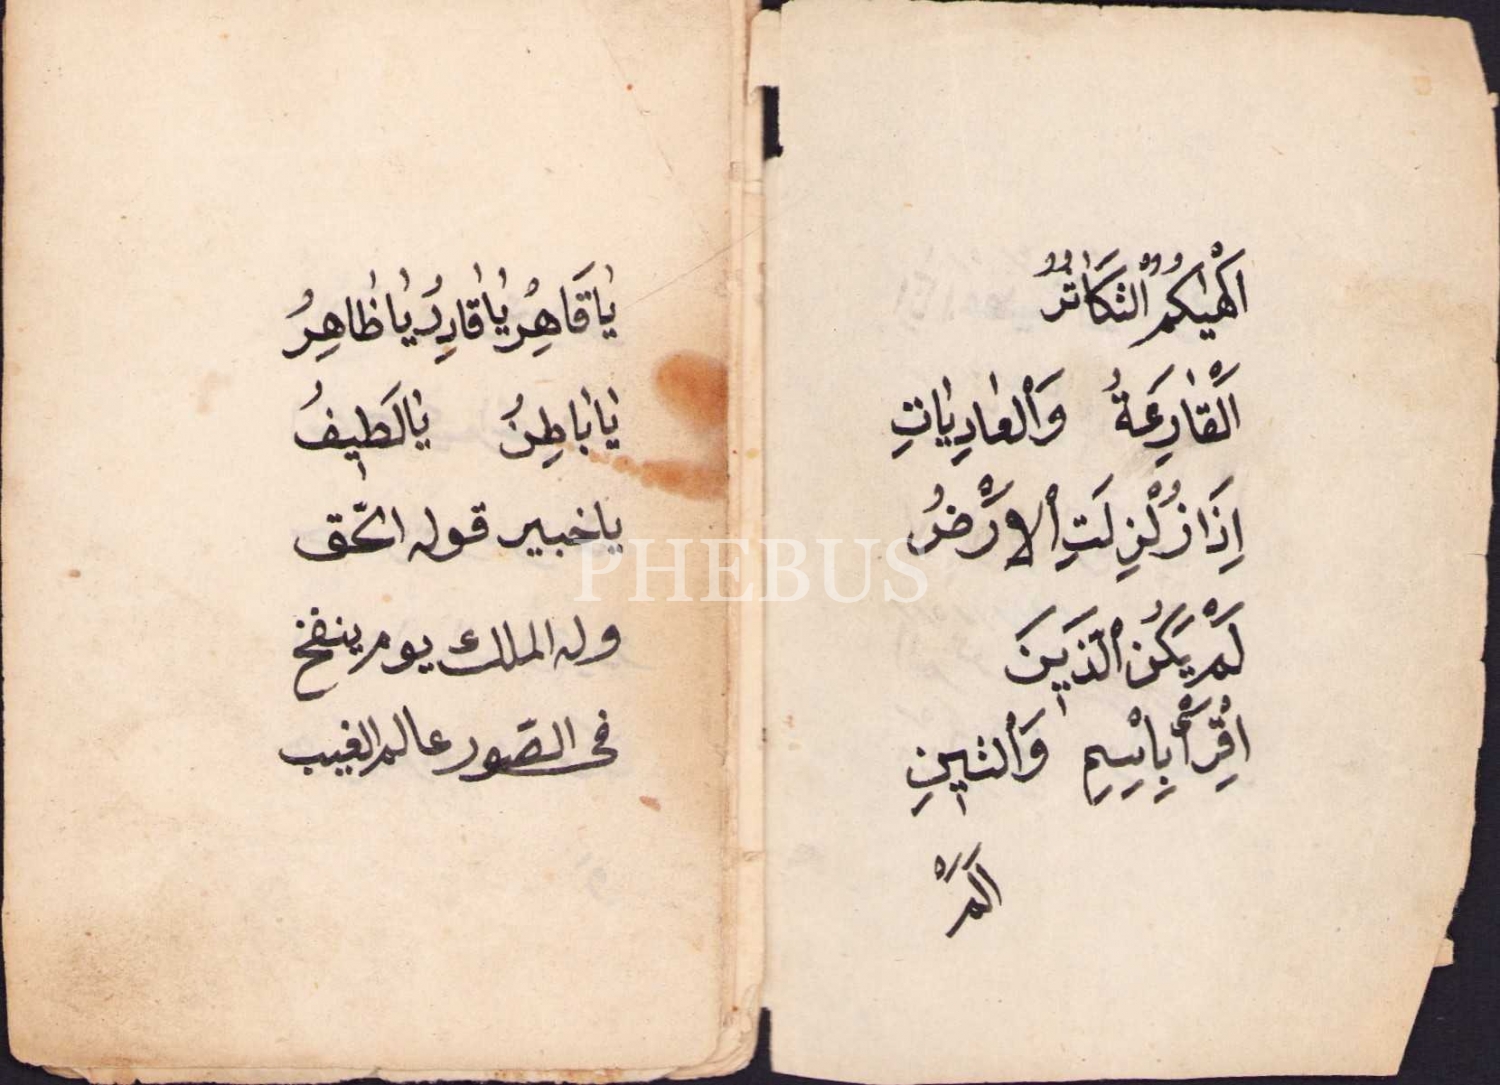 اَلْهٰیكُمُ التَّكَاثُرُ
اَلْقَارِعَةُ وَالْعَادِيَاتِ
اِذَا زُلْزِلَتِ الْاَرْضُ
لَمْ يَكُنِ الَّذٖينَ
اِقْرَأْ بِاسْمِ وَالتّٖينِ
اَلَمْ
يَا قَاهِرُ يَا قَادِرُ يَا ظَاهِرُ
يَا بَاطِنُ يَا لَطٖيفُ
يا خبير قوله الحق
وله الملك يوم ينفخ
فى الصّور عالم الغيب
PHEBUS